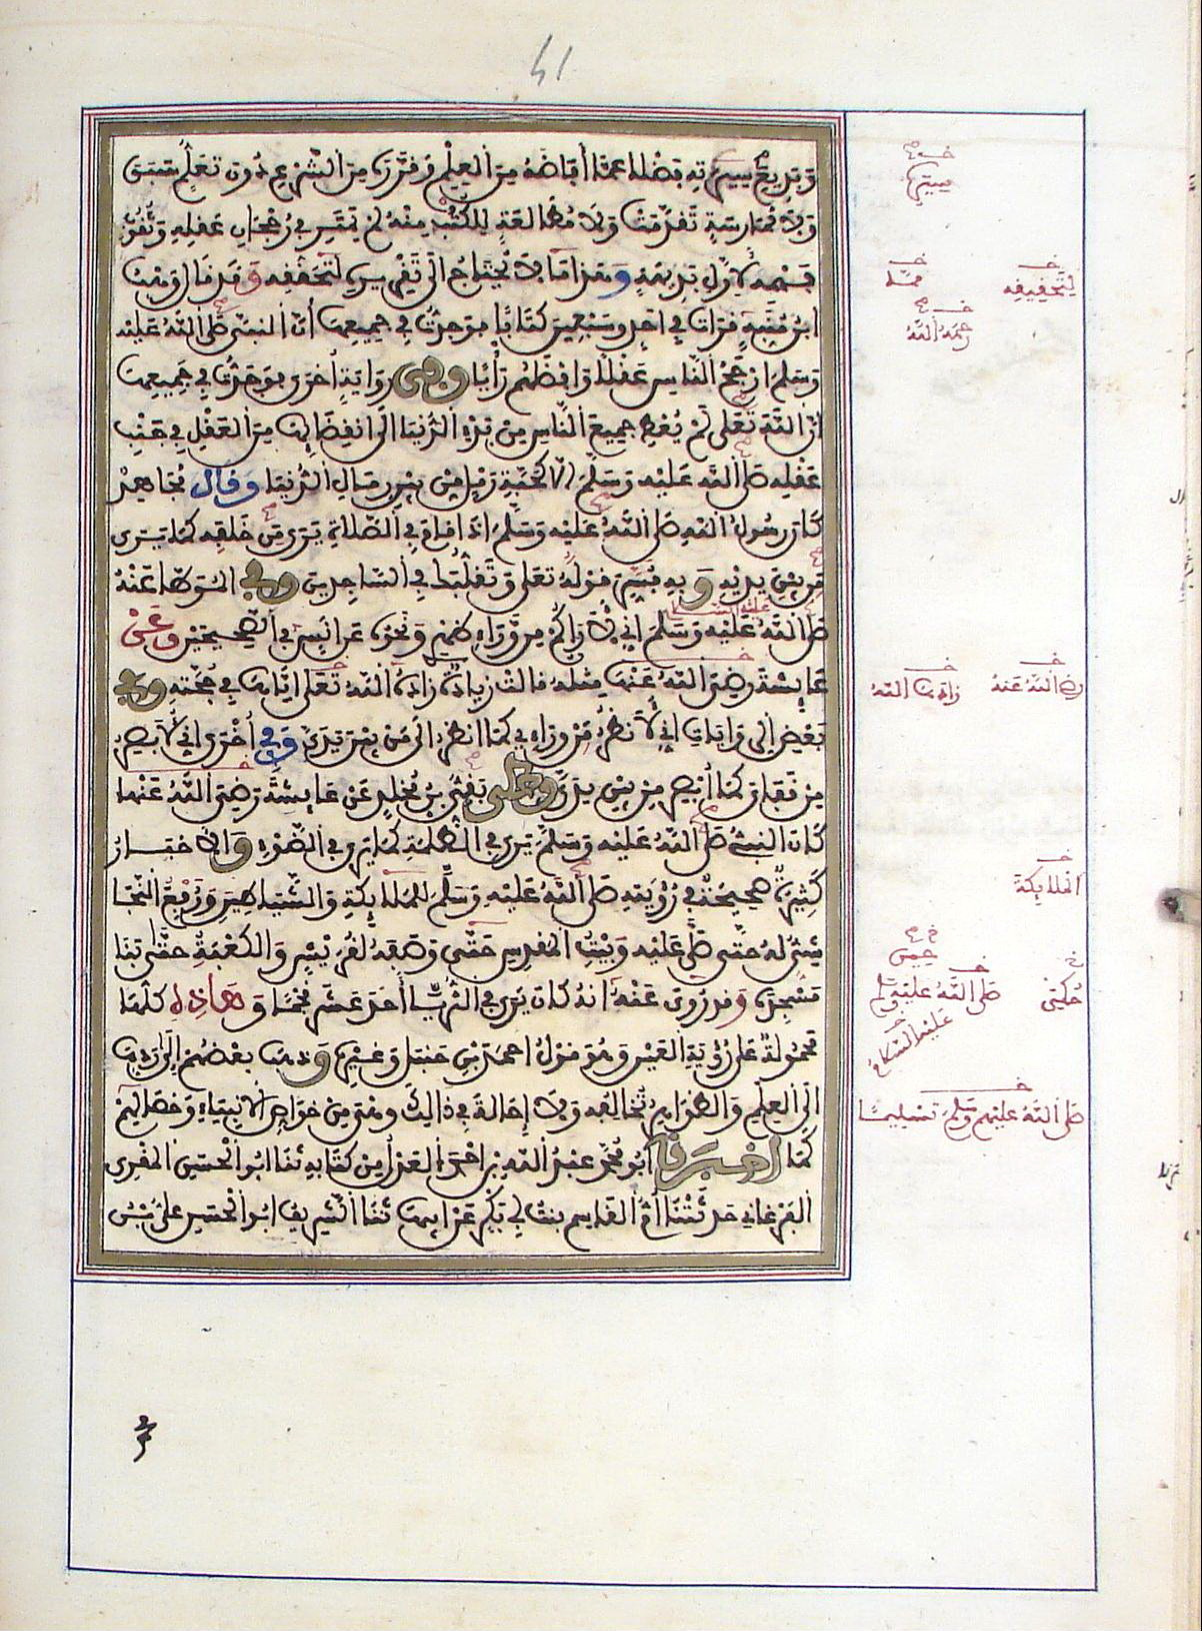 41
وَبَدِيعِ سِيَرِهِ فَضْلًا عَمَّا أَفَاضَهُ مِنَ الْعِلْمِ وَقَرَّرَهُ مِنَ الشَّرْعِ دُونَ تَعَلُّمٍ سَبَقَ
وَلَا مُمَارَسَةٍ تَقَدَّمَتْ وَلَا مُطَالَعَةٍ لِلْكُتُبِ مِنْهُ لَمْ يَمْتَرِ فِي رُجْحَانِ عَقْلِهِ وَثُقُوبِ
فَهْمِهِ لِأَوَّلِ بَدِيهَةٍ وَهَذَا مَا لَا يُحْتَاجُ إِلَى تَقْرِيرِهِ لِتَحَقُّقِهِ وَقَدْ قَالَ وَهْبُ
ابْنُ مُنَبِّهٍ قَرَأْتُ فِي أَحَدٍ وَسَبْعِينَ كِتَابًا فَوَجَدْتُ فِي جَمِيعِهَا أَنَّ النَّبِيَّ صَلَّى اللَّهُ عَلَيْهِ
وَسَلَّمَ أَرْجَحُ النَّاسِ عَقْلًا وَأَفْضَلُهُمْ رَأْيًا وَفِي رِوَايَةٍ أُخْرَى فَوَجَدْتُ فِي جَمِيعِهَا
أَنَّ اللَّهَ تَعَلَى لَمْ يُعْطِ جَمِيعَ النَّاسِ مِنْ بَدْءِ الدُّنْيَا إِلَى انْقِضَائِهَا مِنَ الْعَقْلِ فِي جَنْبِ
عَقْلِهِ صَلَّى اللَّهُ عَلَيْهِ وَسَلَّمَ إِلَّا كَحَبَّةِ رَمْلٍ مِنْ بَيْنِ رِمَالِ الدُّنْيَا وَقَالَ مُجَاهِدٌ
كَانَ رَسُولُ اللَّهِ صَلَّى اللَّهُ عَلَيْهِ وَسَلَّمَ إِذَا قَامَ فِي الصَّلَاةِ يَرَى مَنْ خَلْفَهُ كَمَا يَرَى
مَنْ بَيْنَ يَدَيْهِ وَبِهِ فُسِّرَ قَوْلُهُ تَعَلَى وَتَقَلُّبَكَ فِي السَّاجِدِينَ وَفِي الْمُوَطَّإِ عَنْهُ
صَلَّى اللَّهُ عَلَيْهِ وَسَلَّمَ إِنِّي لَأَرَاكُمْ مِنْ وَرَاءِ ظَهْرِي وَنَحْوُهُ عَنْ أَنَسٍ فِي الصَّحِيحَيْنِ وَعَنْ
عَائِشَةَ رَضِيَ اللَّهُ عَنْهَا مِثْلُهُ قَالَتْ زِيَادَةٌ زَادَهُ اللَّهُ تَعَلَى إِيَّاهَا فِي حُجَّتِهِ وَفِي
بَعْضِ الرِّوَايَاتِ إِنِّي لَأَنْظُرُ مِنْ وَرَاءِي كَمَا أَنْظُرُ إِلَى مَنْ بَيْنَ يَدَيَّ وَفِي أُخْرَى إِنِّي لَأُبْصِرُ
مِنْ قَفَايَ كَمَا أُبْصِرُ مِنْ بَيْنِ يَدَيَّ وَحَكَى بَقِيُّ بْنُ مَخْلَدٍ عَنْ عَائِشَةَ رَضِيَ اللَّهُ عَنْهَا
كَانَ النَّبِيُّ صَلَّى اللَّهُ عَلَيْهِ وَسَلَّمَ يَرَى فِي الظُّلْمَةِ كَمَا يَرَى فِي الضَّوْءِ وَالْأَخْبَارُ
كَثِيرَةٌ صَحِيحَةٌ فِي رُؤْيَتِهِ صَلَّى اللَّهُ عَلَيْهِ وَسَلَّمَ لِلْمَلَائِكَةِ وَالشَّيَاطِينِ وَرُفِعَ النَّجَا
شِيُّ لَهُ حَتَّى صَلَّى عَلَيْهِ وَبَيْتُ الْمَقْدِسِ حَتَّى وَصَفَهُ لِقُرَيْشٍ وَالْكَعْبَةُ حَتَّى بَنَا
مَسْجِدَهُ وَقَدْ رُوِيَ عَنْهُ أَنَّهُ كَانَ يَرَى فِي الثُّرَيَّا أَحَدَ عَشَرَ نَجْمًا وَهَاذِهِ كُلُّهَا
مَحْمُولَةٌ عَلَى رُؤْيَةِ الْعَيْنِ وَهُوَ قَوْلُ أَحْمَدَ بْنِ حَنْبَلٍ وَغَيْرِهِ وَذَهَبَ بَعْضُهُمْ إِلَى رَدِّهَا
إِلَى الْعِلْمِ وَالظَّوَاهِرُ تُخَالِفُهُ وَلَا إِحَالَةَ فِي ذَالِكَ وَهْيَ مِنْ خَوَاصِّ الْأَنْبِيَاءِ وَخِصَالِهِمْ
كَمَا أَخْبَرَنَا أَبُو مُحَمَّدٍ عَبْدُ اللَّهِ بْنُ أَحْمَدَ الْعَدْلُ مِنْ كِتَابِهِ ثَنَا أَبُو الْحَسَنِ الْمُقْرِي
الْفَرْغَانِي حَدَّثَتْنَا أُمُّ الْقَاسِمِ بِنْتُ أَبِي بَكْرٍ عَنْ أَبِيهَا ثَنَا الشَّرِيفُ أَبُو الْحَسَنِ عَلِيُّ بْنُ
لِتَحْقِيقِهِ
رَحِمَهُ اللَّهُ
رَضِيَ اللَّهُ عَنْهُ
زَادَهَا اللَّهُ
عَلَيْهِ السَّلَامُ
الْمَلَائِكَةَ
حِينَ
حُكِيَ
صَلَّى اللَّهُ عَلَيْهِ وَسَلَّمَ
عَلَيْهِ السَّلَامُ
صَلَّى اللَّهُ عَلَيْهِمْ وَسَلَّمَ تَسْلِيمًا